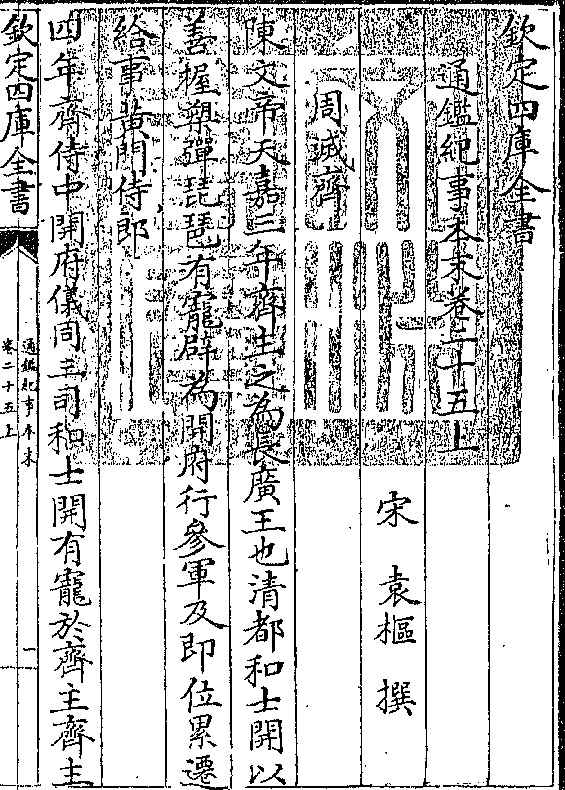 欽定四庫全書
通鑑紀事本末卷二十五上
宋 袁樞 撰
周滅齊
陳文帝天嘉三年齊主之為長廣王也清都和士開以
善握槊彈琵琶有寵辟為開府行參軍及即位累遷
給事黄門侍郎
四年齊侍中開府儀同三司和士開有寵於齊主齊主
欽定四庫全書
通鑑紀事本末
卷二十五上
一